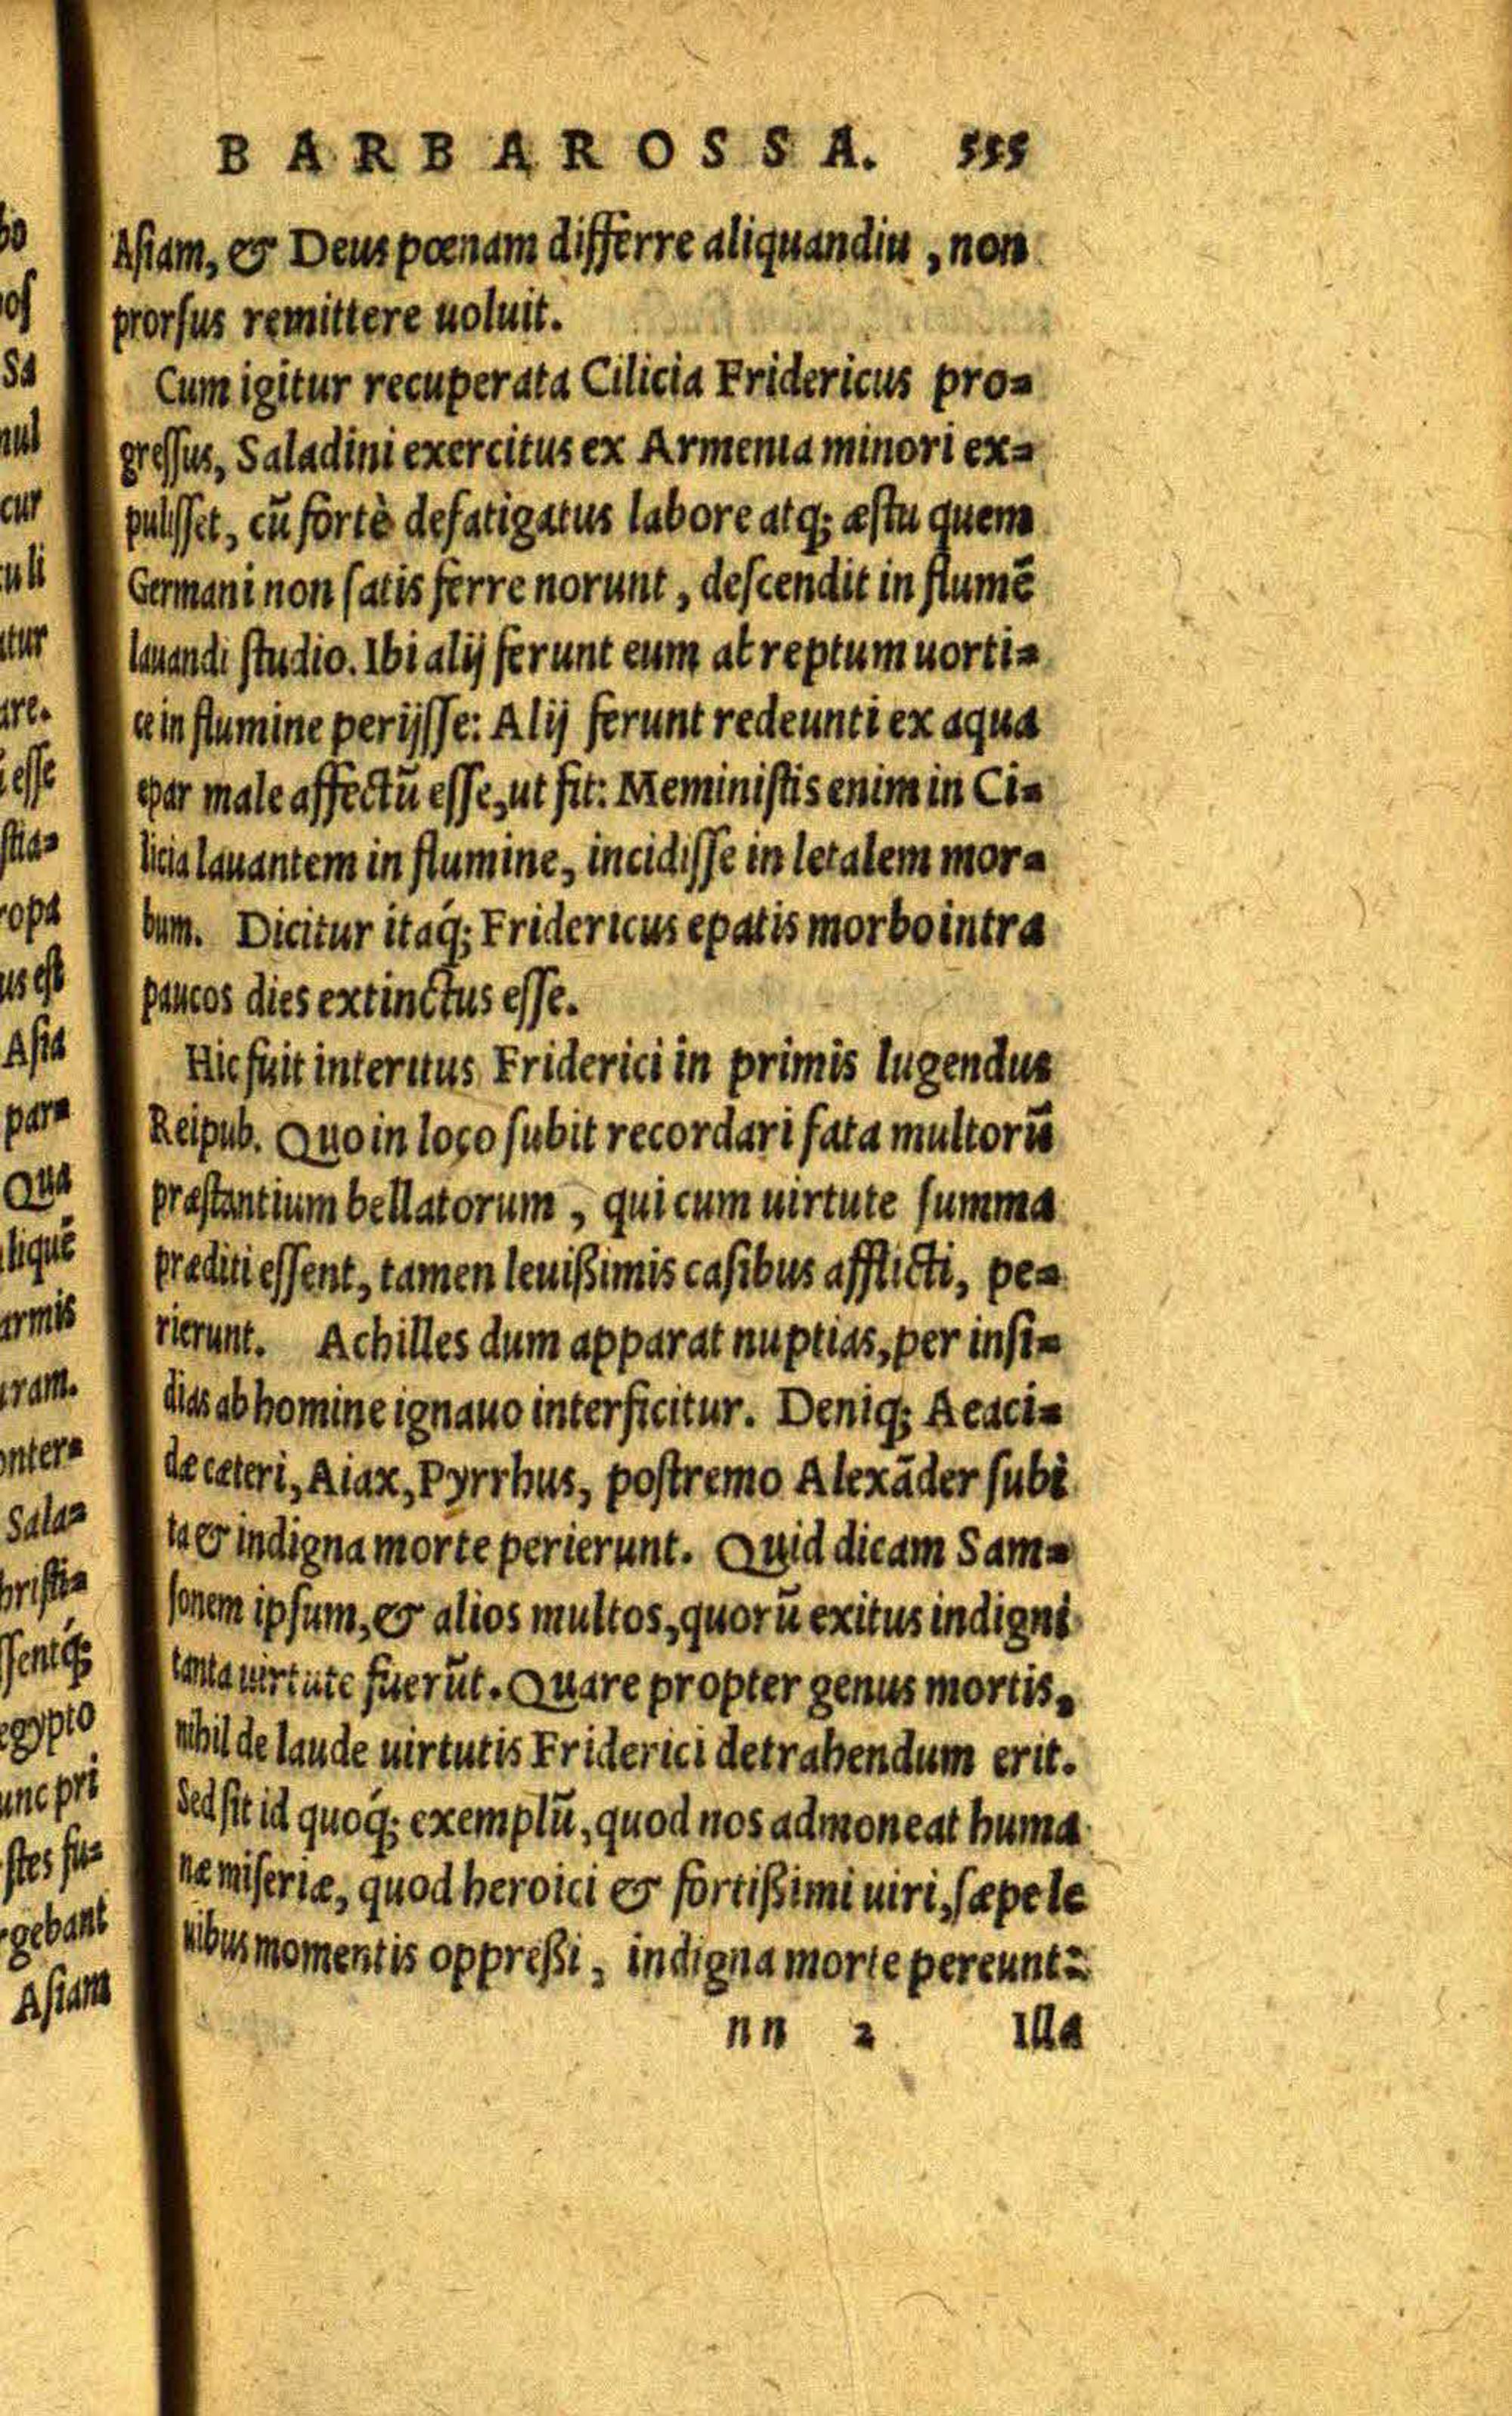 BARBAROSSA. 555
Asiam, & Deus pœnam differre aliquandiu, non
prorsus remittere uoluit.
Cum igitur recuperata Cilicia Fridericus pro-
gressus, Saladini exercitus ex Armenia minori ex-
pulisset, cū fortè defatigatus labore atq; æstu quem
Germani non satis ferre norunt, descendit in flumē
lauandi studio. Ibi alij ferunt eum abreptum uorti-
ce in flumine perijsse: Alij ferunt redeunti ex aqua
epar male affectū esse, ut fit: Meministis enim in Ci-
licia lauantem in flumine, incidisse in letalem mor-
bum. Dicitur itaq́; Fridericus epatis morbo intra
paucos dies extinctus esse.
Hic fuit interitus Friderici in primis lugendus
Reipub. Quo in loco subit recordari fata multorū
præstantium bellatorum, qui cum uirtute summa
præditi essent, tamen leuißimis casibus afflicti, pe-
rierunt. Achilles dum apparat nuptias, per insi-
dias ab homine ignauo interficitur. Deniq; Aeaci-
dæ cæteri, Aiax, Pyrrhus, postremo Alexāder subi
ta & indigna morte perierunt. Quid dicam Sam-
sonem ipsum, & alios multos, quorū exitus indigni
tanta uirtute fuerūt. Quare propter genus mortis,
nihil de laude uirtutis Friderici detrahendum erit.
Sed sit id quoq́; exemplū, quod nos admoneat huma
næ miseriæ, quod heroici & fortißimi uiri, sæpe le
uibus momentis oppreßi, indigna morte pereunt:
nn 2 Illa